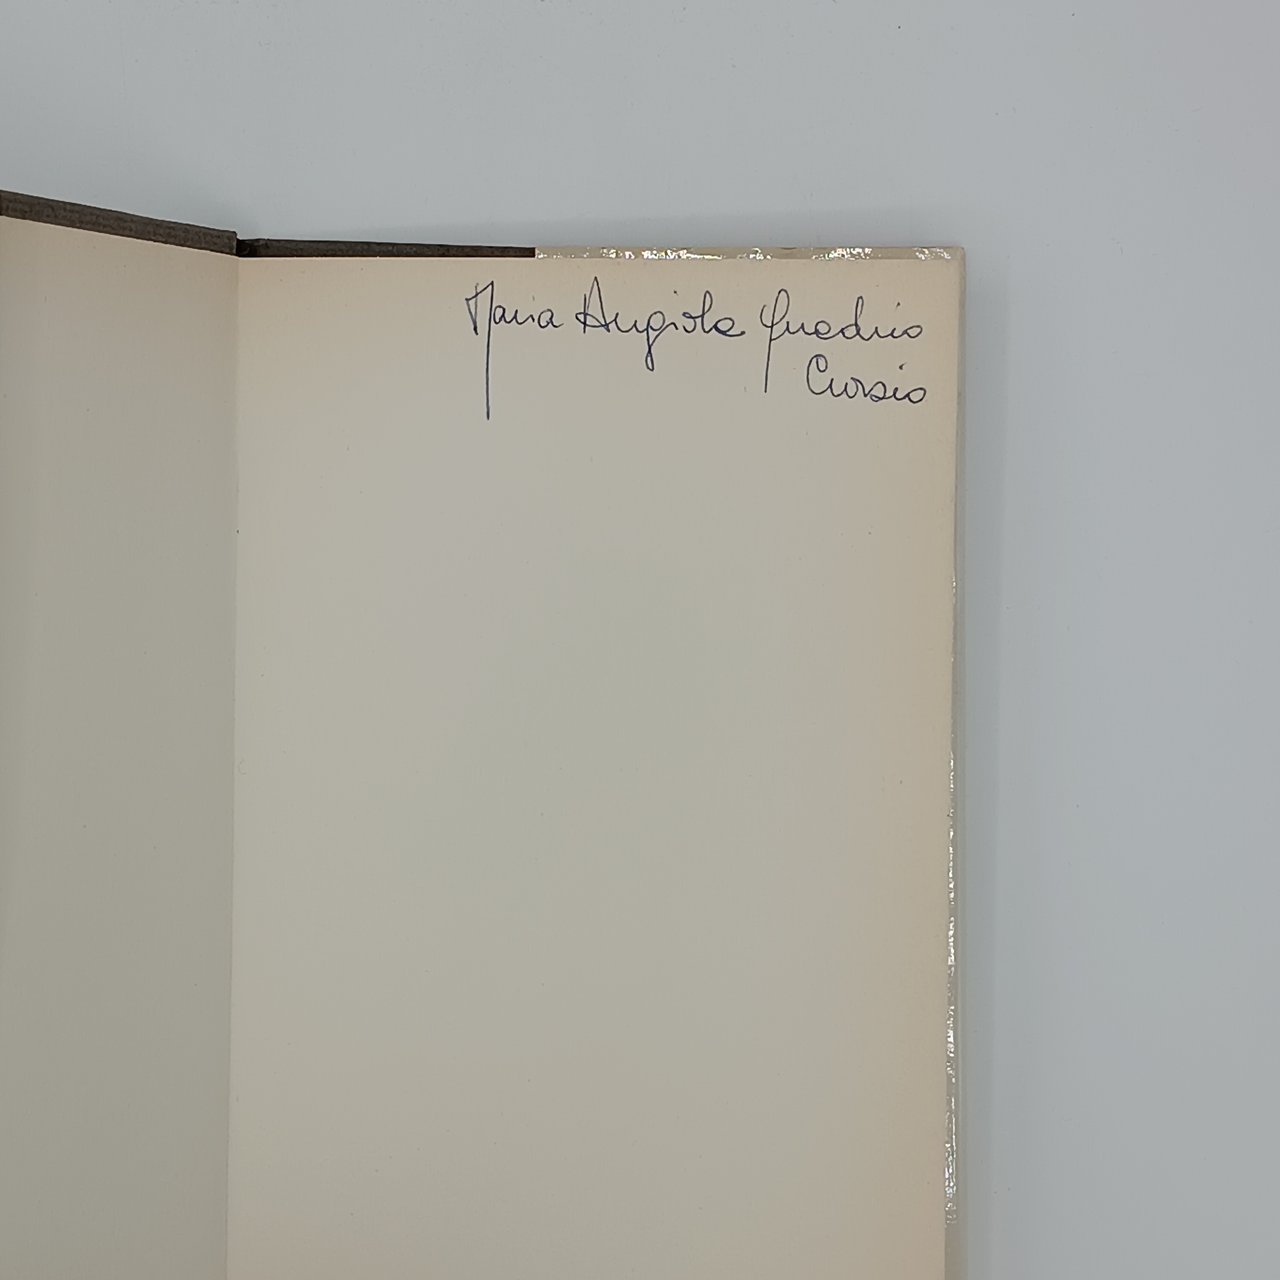 Maria Angiola Quadrio
Curzio